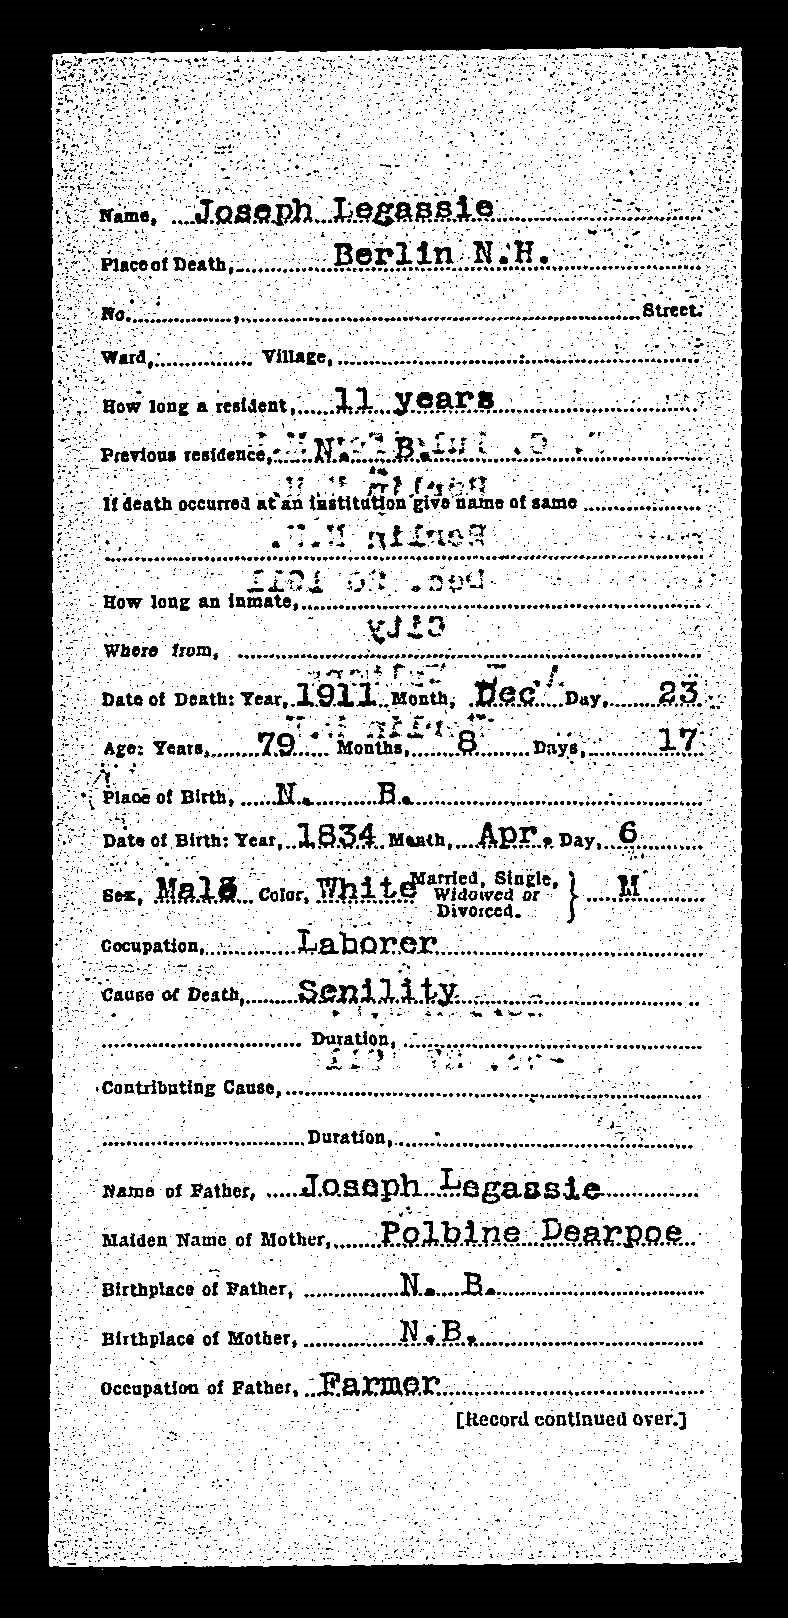 Name, Joseph Legassie
Place of Death, Berlin N.H.
No. Street.
Ward, Village,
How long a resident, 11 years
Previous residence, N. B.
If death occurred at an institution give name of same
How long an inmate,
Where from,
Date of Death: Year, 1911 Month, Dec Day, 23
Age: Years, 79 Months, 8 Days, 17
Place of Birth, N. B.
Date of Birth: Year, 1834 Month, Apr. Day, 6
Sex, Male Color, White Married, Single, Widowed or Divorced. } M
Occupation, Laborer
Cause of Death, Senility
Duration,
Contributing Cause,
Duration,
Name of Father, Joseph Legassie
Maiden Name of Mother, Polbine Dearpoe
Birthplace of Father, N. B.
Birthplace of Mother, N.B.
Occupation of Father, Farmer
[Record continued over.]